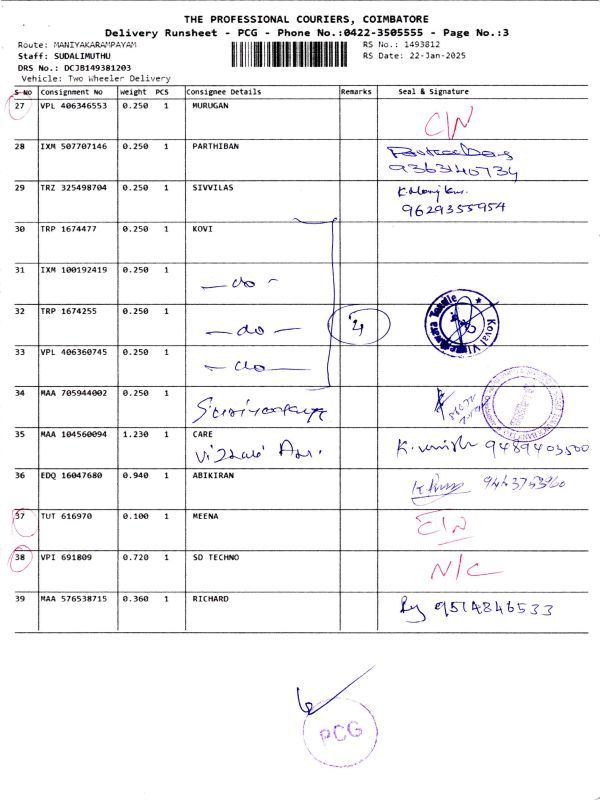 THE PROFESSIONAL COURIERS, COIMBATORE
Delivery Runsheet - PCG - Phone No.:0422-3505555 - Page No.:3
Route: MANIYAKARAMPAYAM
RS No.: 1493812
Staff: SUDALIMUTHU
RS Date: 22-Jan-2025
DRS No.: DCJB149381203
Vehicle: Two Wheeler Delivery
S NO Consignment No Weight PCS Consignee Details Remarks Seal & Signature
27 VPL 406346553 0.250 1 MURUGAN
C/N
28 IXM 507707146 0.250 1 PARTHIBAN
9363140734
29 TRZ 325498704 0.250 1 SIVVILAS
9629355954
30 TRP 1674477 0.250 1 KOVI
31 IXM 100192419 0.250 1
- do -
32 TRP 1674255 0.250 1
- do - 4
33 VPL 406360745 0.250 1
- do -
34 MAA 705944002 0.250 1
35 MAA 104560094 1.230 1 CARE
9489403500
36 EDQ 16047680 0.940 1 ABIKIRAN
37 TUT 616970 0.100 1 MEENA
38 VPI 691809 0.720 1 SD TECHNO
N/C
39 MAA 576538715 0.360 1 RICHARD
9514846533
PCG